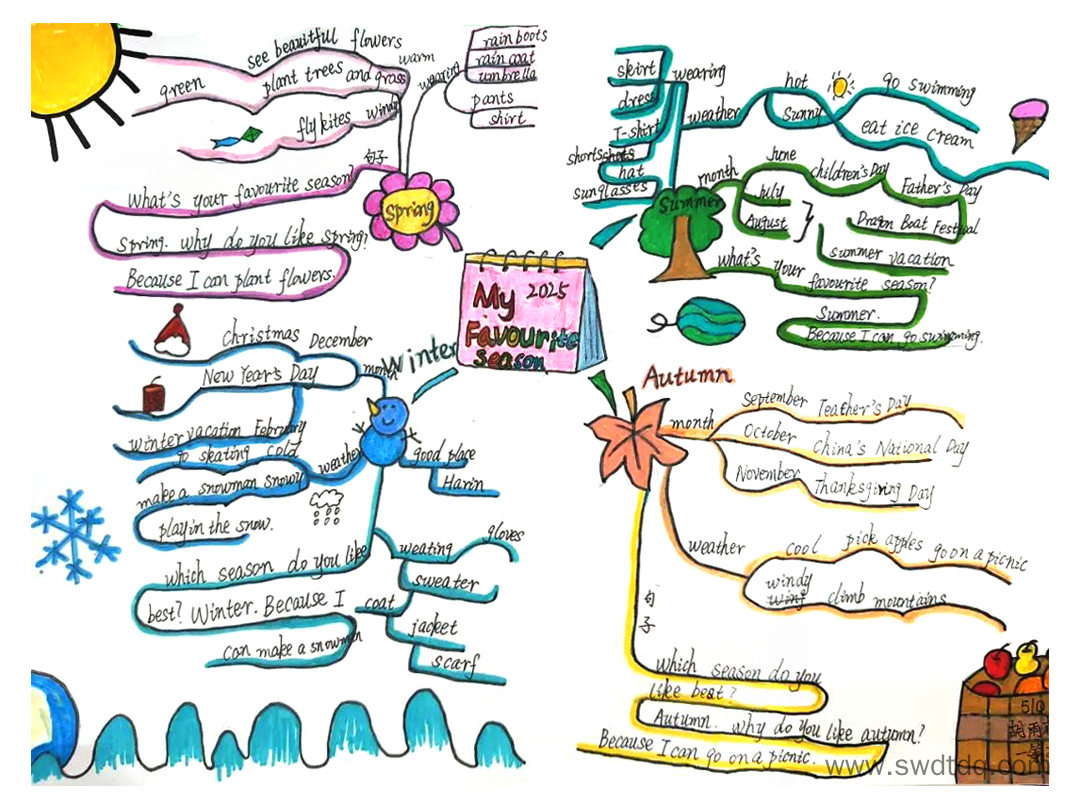 see beautiful flowers
green
plant trees and grass
warm
fly kites
windy
wearing
rain boots
rain coat
umbrella
pants
shirt
句子
What's your favourite season?
Spring. why do you like spring?
Because I can plant flowers.
Spring
skirt
dress
T-shirt
shorts shorts
hat
sunglasses
wearing
weather
hot
sunny
go swimming
eat ice cream
Summer
month
June
children's Day
Father's Day
Dragon Boat Festival
July
August
summer vacation
what's your
favourite season?
Summer.
Because I can go swimming.
My 2025
Favourite
season
Winter
month
Christmas December
New Year's Day
winter vacation February
weather
go skating cold
make a snowman snowy
play in the snow.
good place
Harin
which season do you like
best? Winter. Because I
can make a snowman
weating
gloves
sweater
coat
jacket
scarf
Autumn
month
September Teather's Day
October China's National Day
November Thanksgiving Day
weather
cool pick apples go on a picnic
windy
climb mountains
句子
Which season do you
like best?
Autumn. Why do you like autumn?
Because I can go on a picnic.
510
www.swdtdq.com